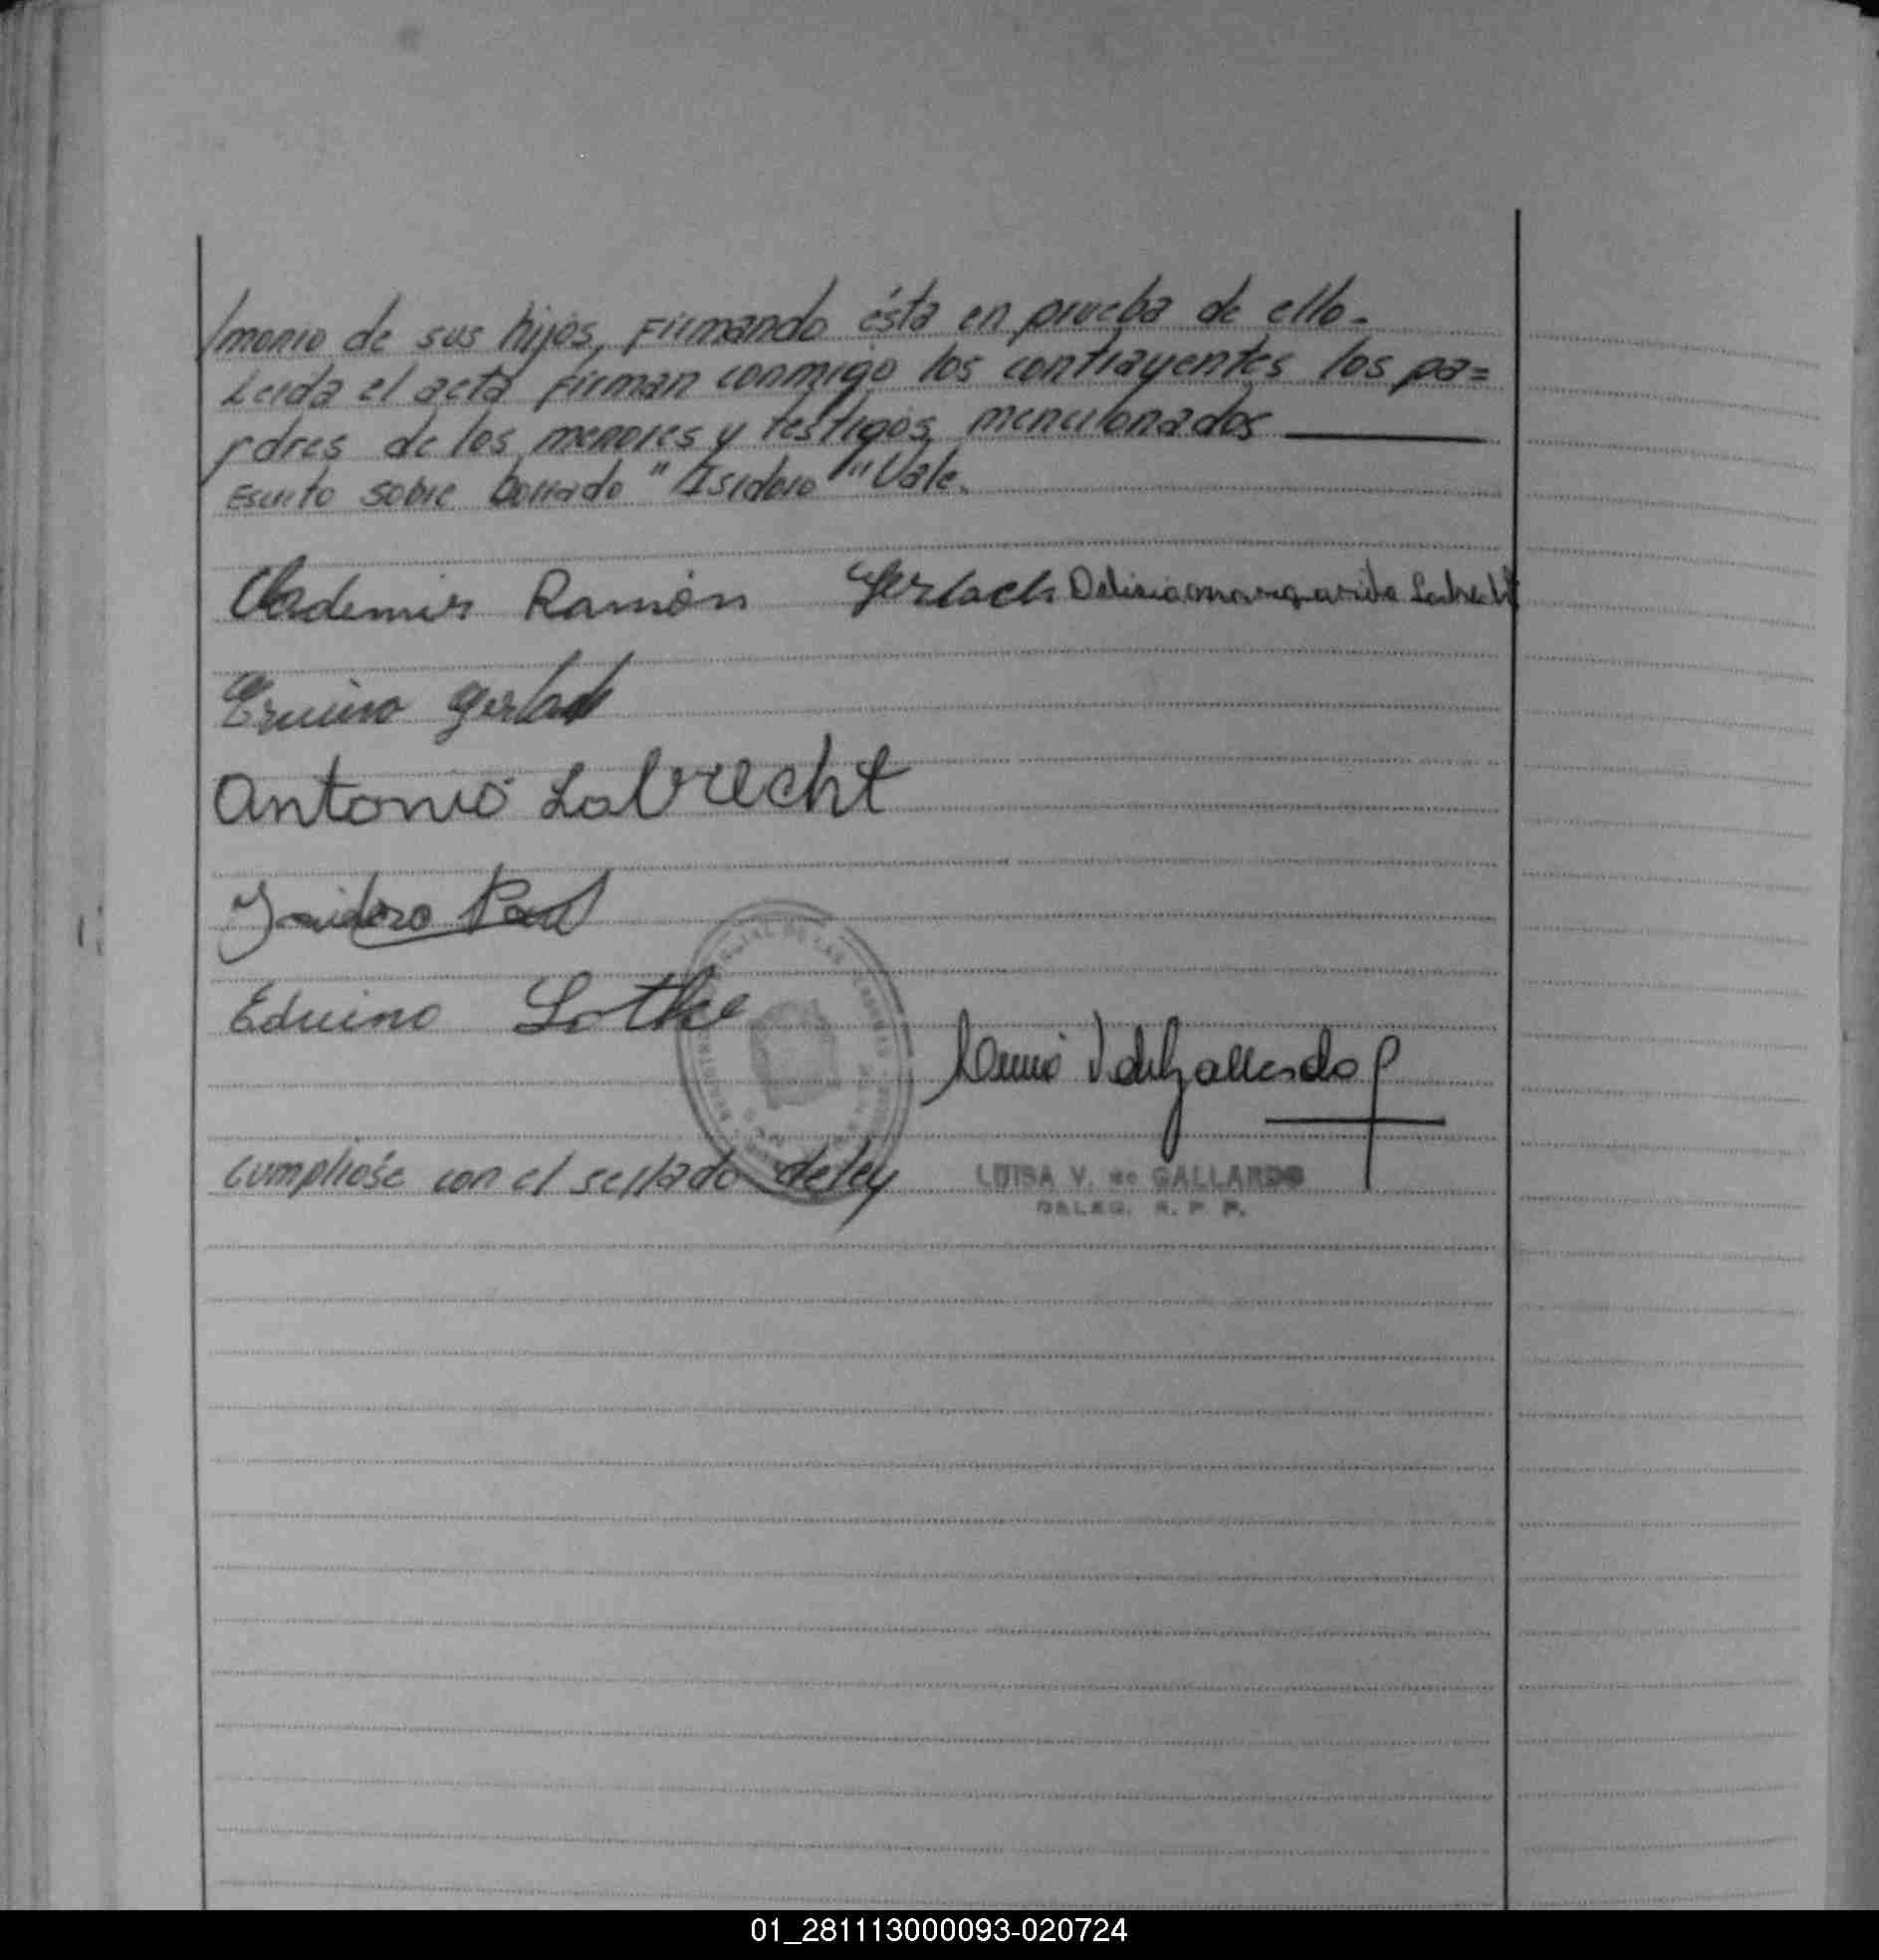 /monio de sus hijos, firmando ésta en prueba de ello.
Leida el acta firman conmigo los contrayentes los pa=
/dres de los menores y testigos mencionados
Escrito sobre borrado "Isidoro" Vale.
Vlademir Ramón Gerlach Delicia margarida Labrecht
Eruino Gerlach
Antonio Labrecht
Isidoro Paul
Eduino Lothe
Cumpliose con el sellado de ley
LUISA V. de GALLARDO
DELEG. R. P. P.
01_281113000093-020724